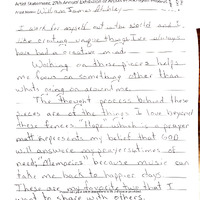 Artist Statement, 25th Annual Exhibition of Artists in Michigan Prisons
William James
I work for myself out in the world and I
like creating unique things I've always
been had a creative mind.
Working on these pieces helps
me focus on something other than
whats going on around me.
The thought process behind these
pieces are of the things I love beyond
these fences. "Hope" which is a prayer
represents my belief that GOD
will answere my prayers in times of
need; "Memories" because music can
take me back to happier days.
These are two that I
want to share with others.